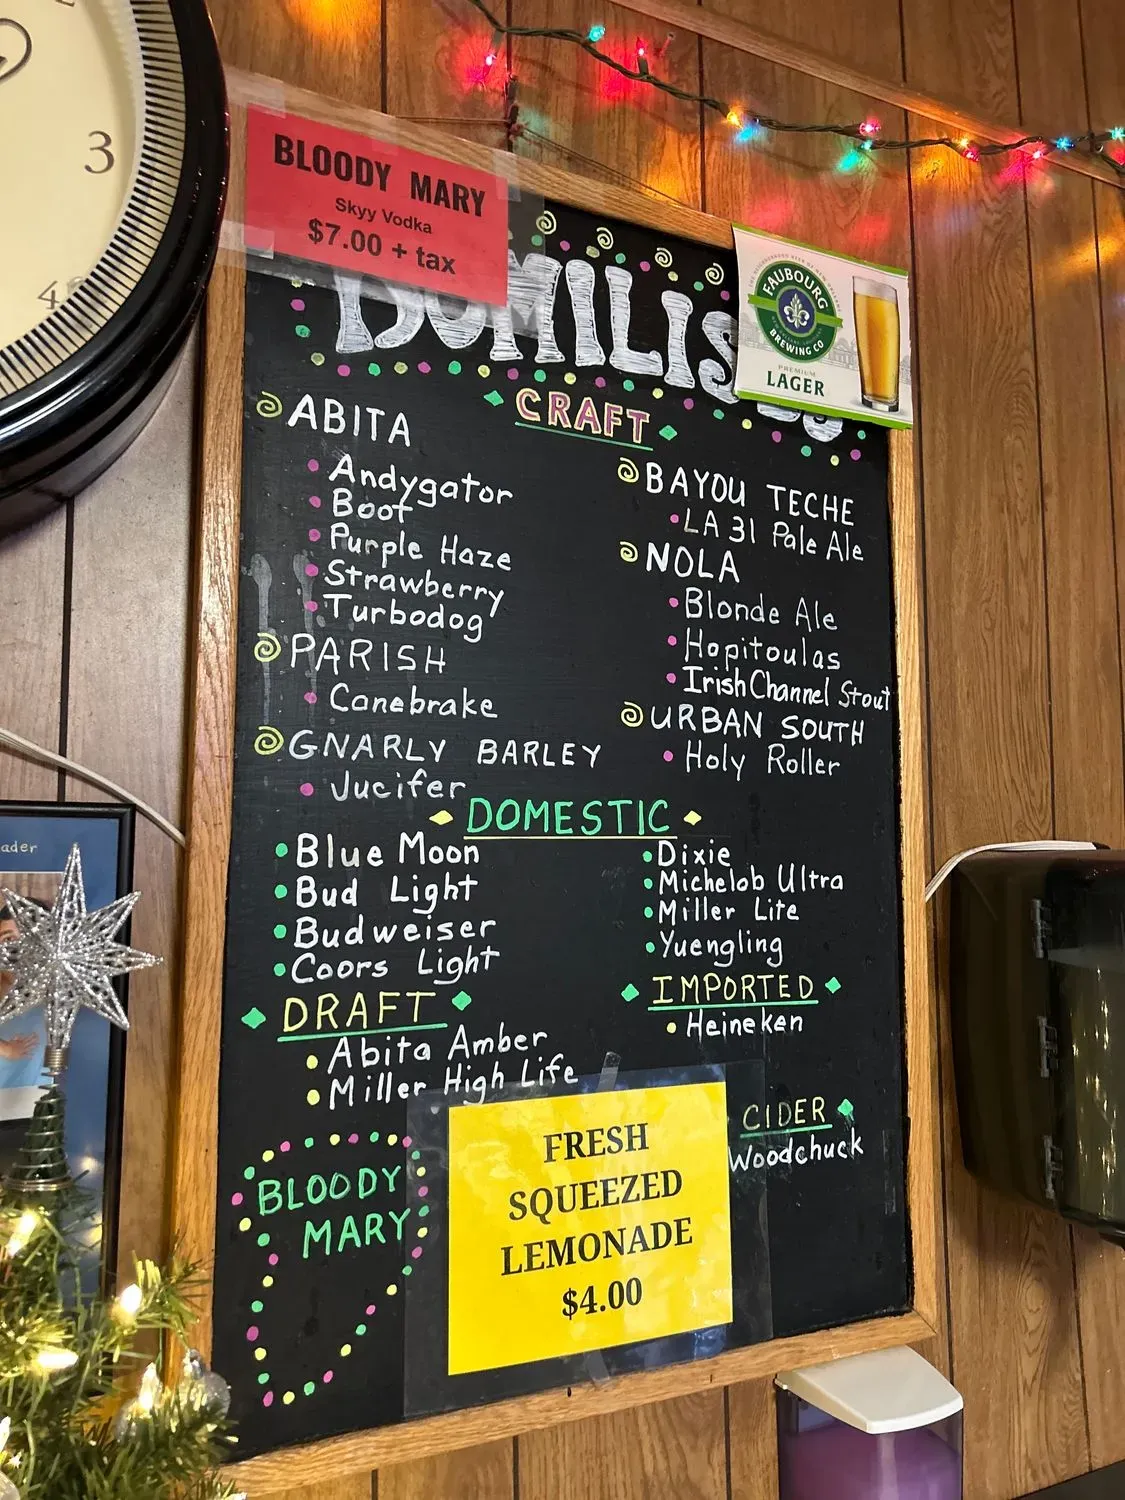 3
4
ader
BLOODY MARY
Skyy Vodka
$7.00 + tax
FAUBOURG
BREWING CO
PREMIUM
LAGER
CRAFT
ABITA
Andygator
Boot
Purple Haze
Strawberry
Turbodog
PARISH
Canebrake
GNARLY BARLEY
Jucifer
BAYOU TECHE
LA 31 Pale Ale
NOLA
Blonde Ale
Hopitoulas
Irish Channel Stout
URBAN SOUTH
Holy Roller
DOMESTIC
Blue Moon
Bud Light
Budweiser
Coors Light
Dixie
Michelob Ultra
Miller Lite
Yuengling
DRAFT
Abita Amber
Miller High Life
IMPORTED
Heineken
CIDER
Woodchuck
BLOODY
MARY
FRESH
SQUEEZED
LEMONADE
$4.00